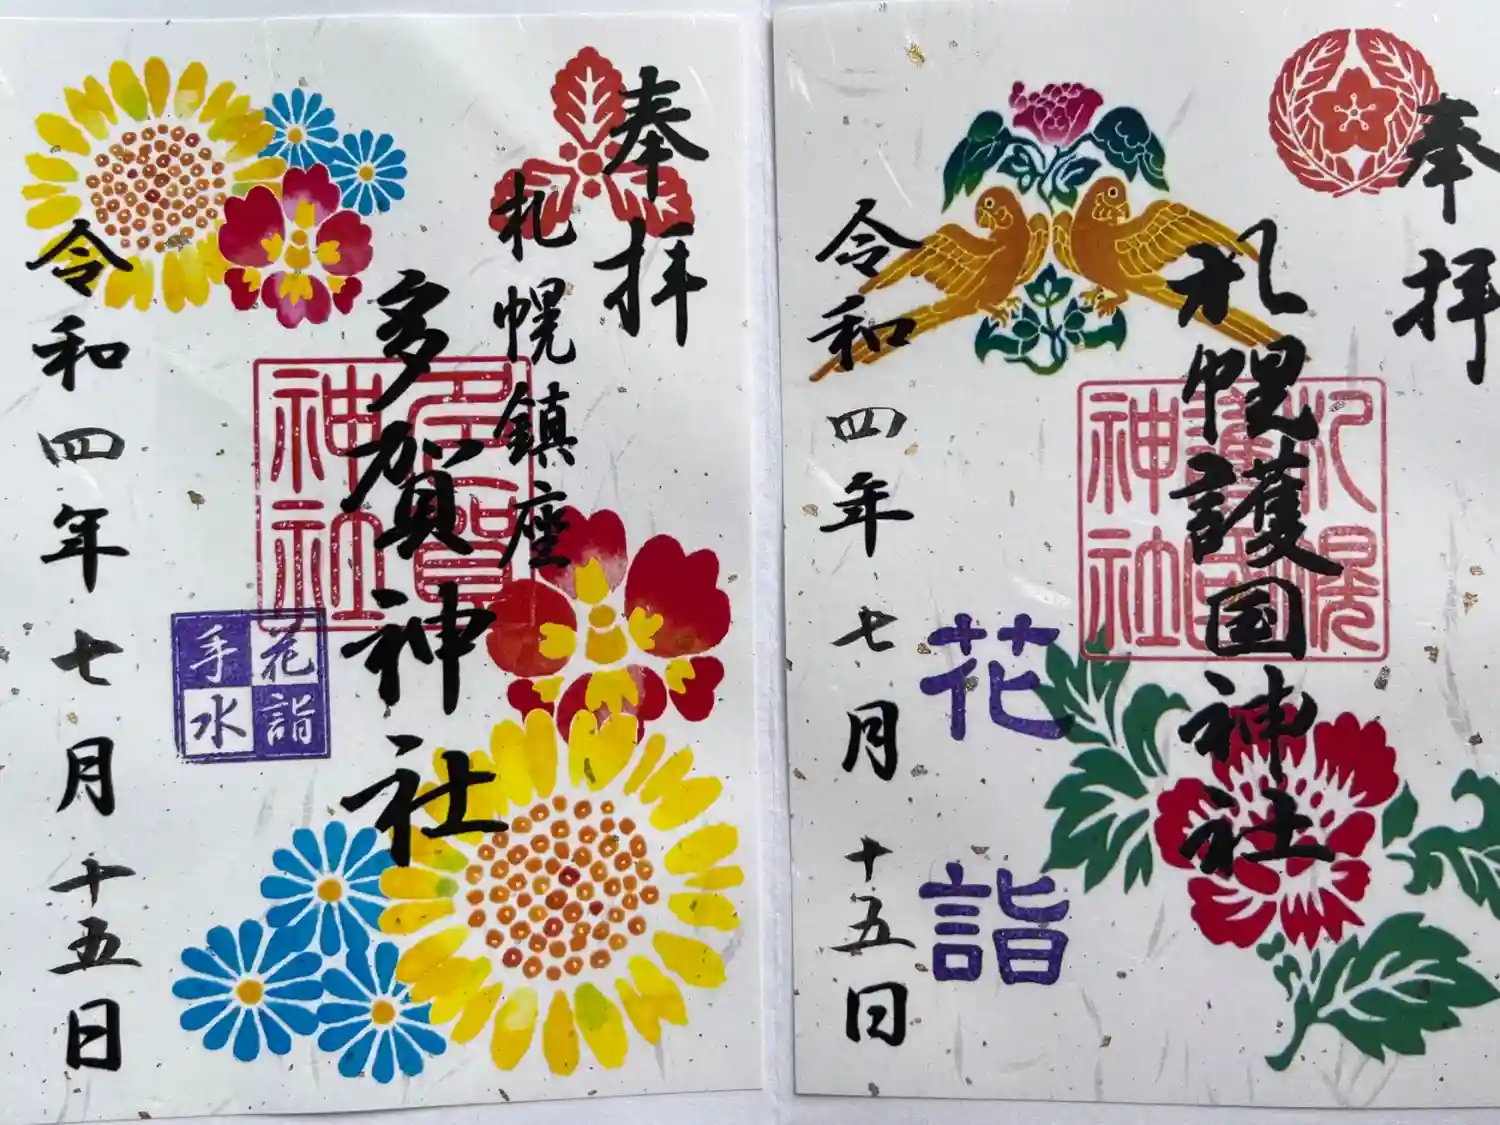 奉拝
札幌鎮座
多賀神社
多賀神社
花詣
手水
令和四年七月十五日
奉拝
札幌護国神社
札幌護国神社
花詣
令和四年七月十五日